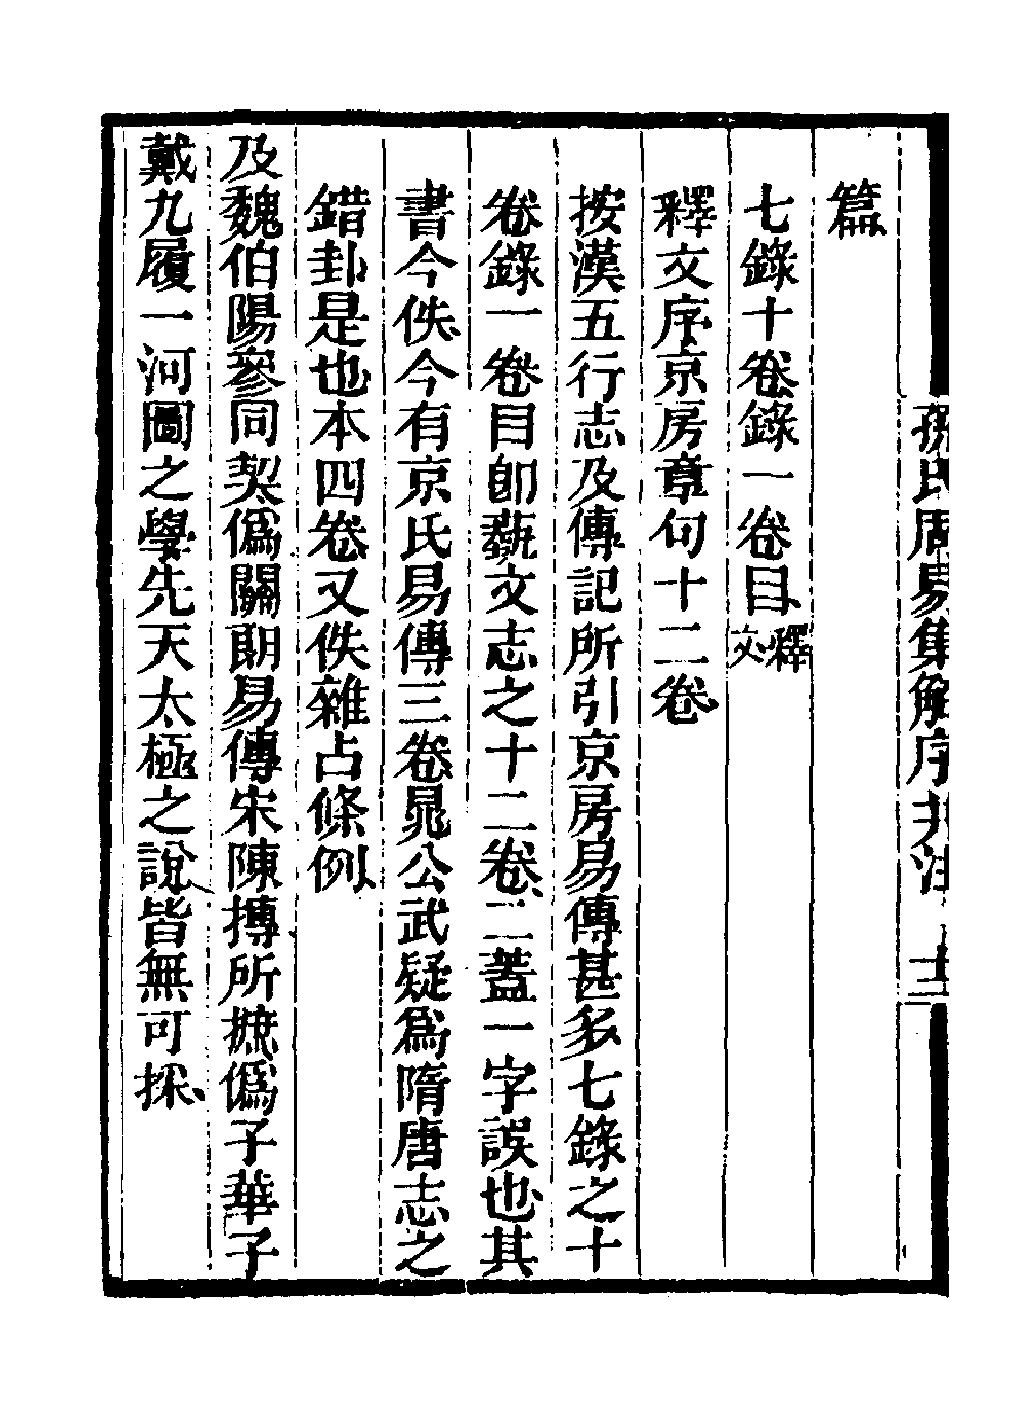 孫氏周易集解序并注　十三
篇
七錄十卷錄一卷目釋文
釋文序京房章句十二卷
按漢五行志及傳記所引京房易傳甚多七錄之十
卷錄一卷目卽藝文志之十二卷二蓋一字誤也其
書今佚今有京氏易傳三卷晁公武疑爲隋唐志之
錯卦是也本四卷又佚雜占條例
及魏伯陽參同契僞關朗易傳宋陳摶所摭僞子華子
戴九履一河圖之學先天太極之說皆無可採